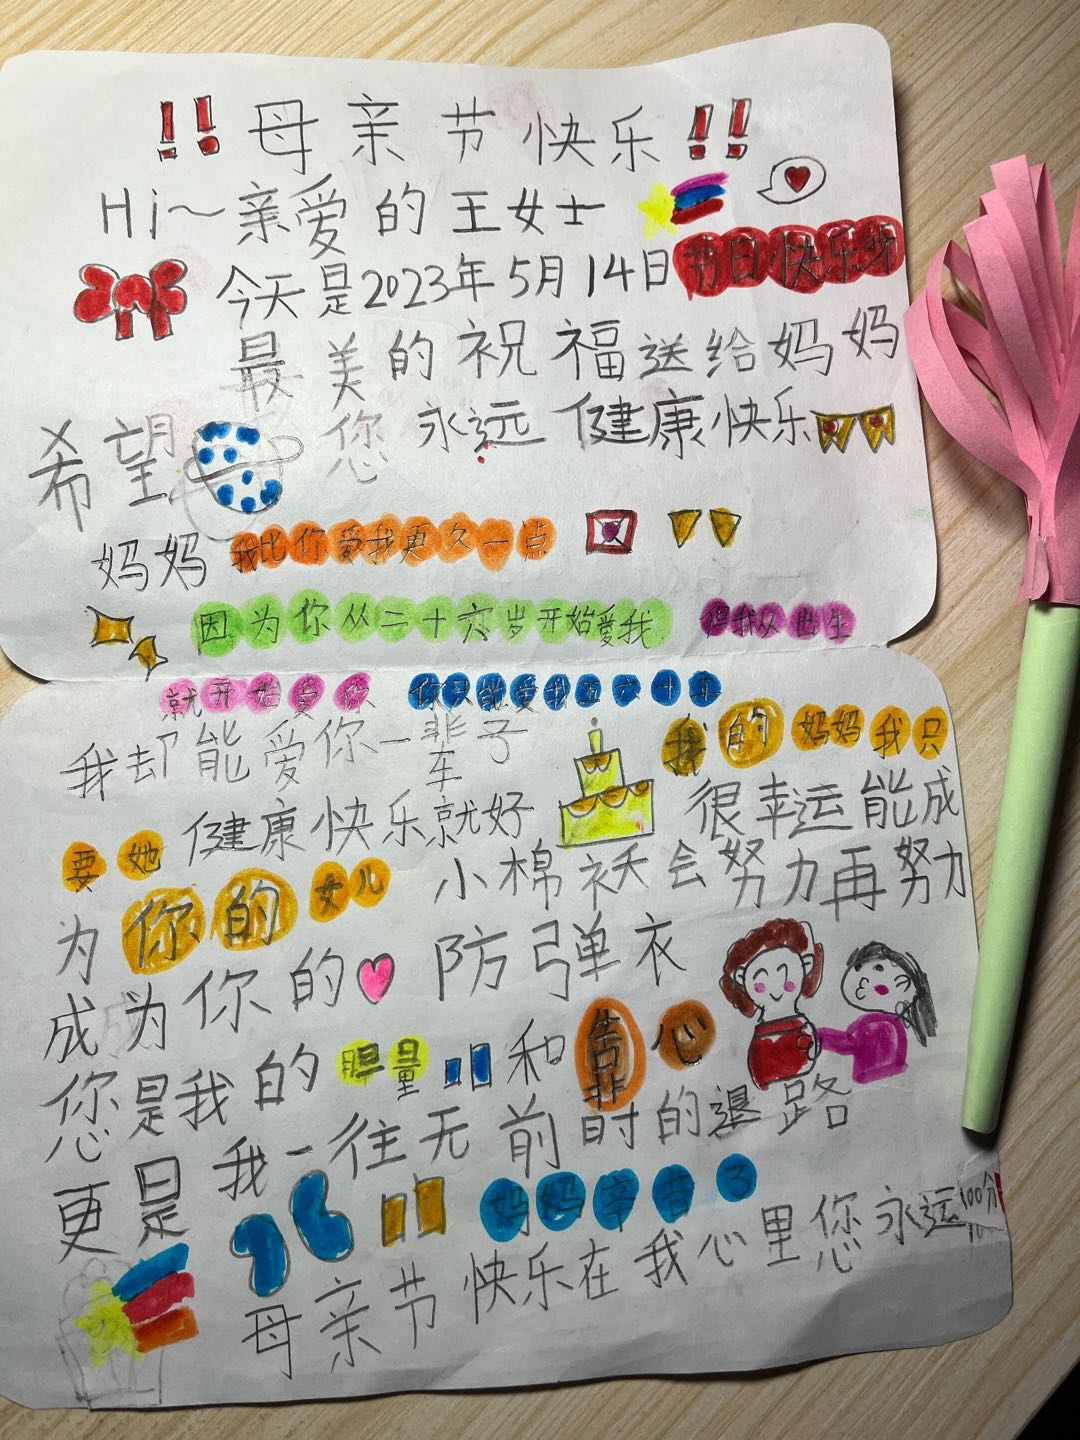 !! 母亲节快乐 !!
Hi～亲爱的王女士
今天是2023年5月14日节日快乐呀
最美的祝福送给妈妈
希望 您永远健康快乐
妈妈 我比你爱我更久一点
因为你从二十六岁开始爱我 但我从出生
就开始爱你 你只能爱我五六十年
我却能爱你一辈子 我的妈妈我只
要她健康快乐就好 很幸运能成
为你的女儿 小棉袄会努力再努力
成为你的 防弹衣
您是我的胆量 和靠心
更是我一往无前时的退路
妈妈辛苦了
母亲节快乐在我心里您永远100分